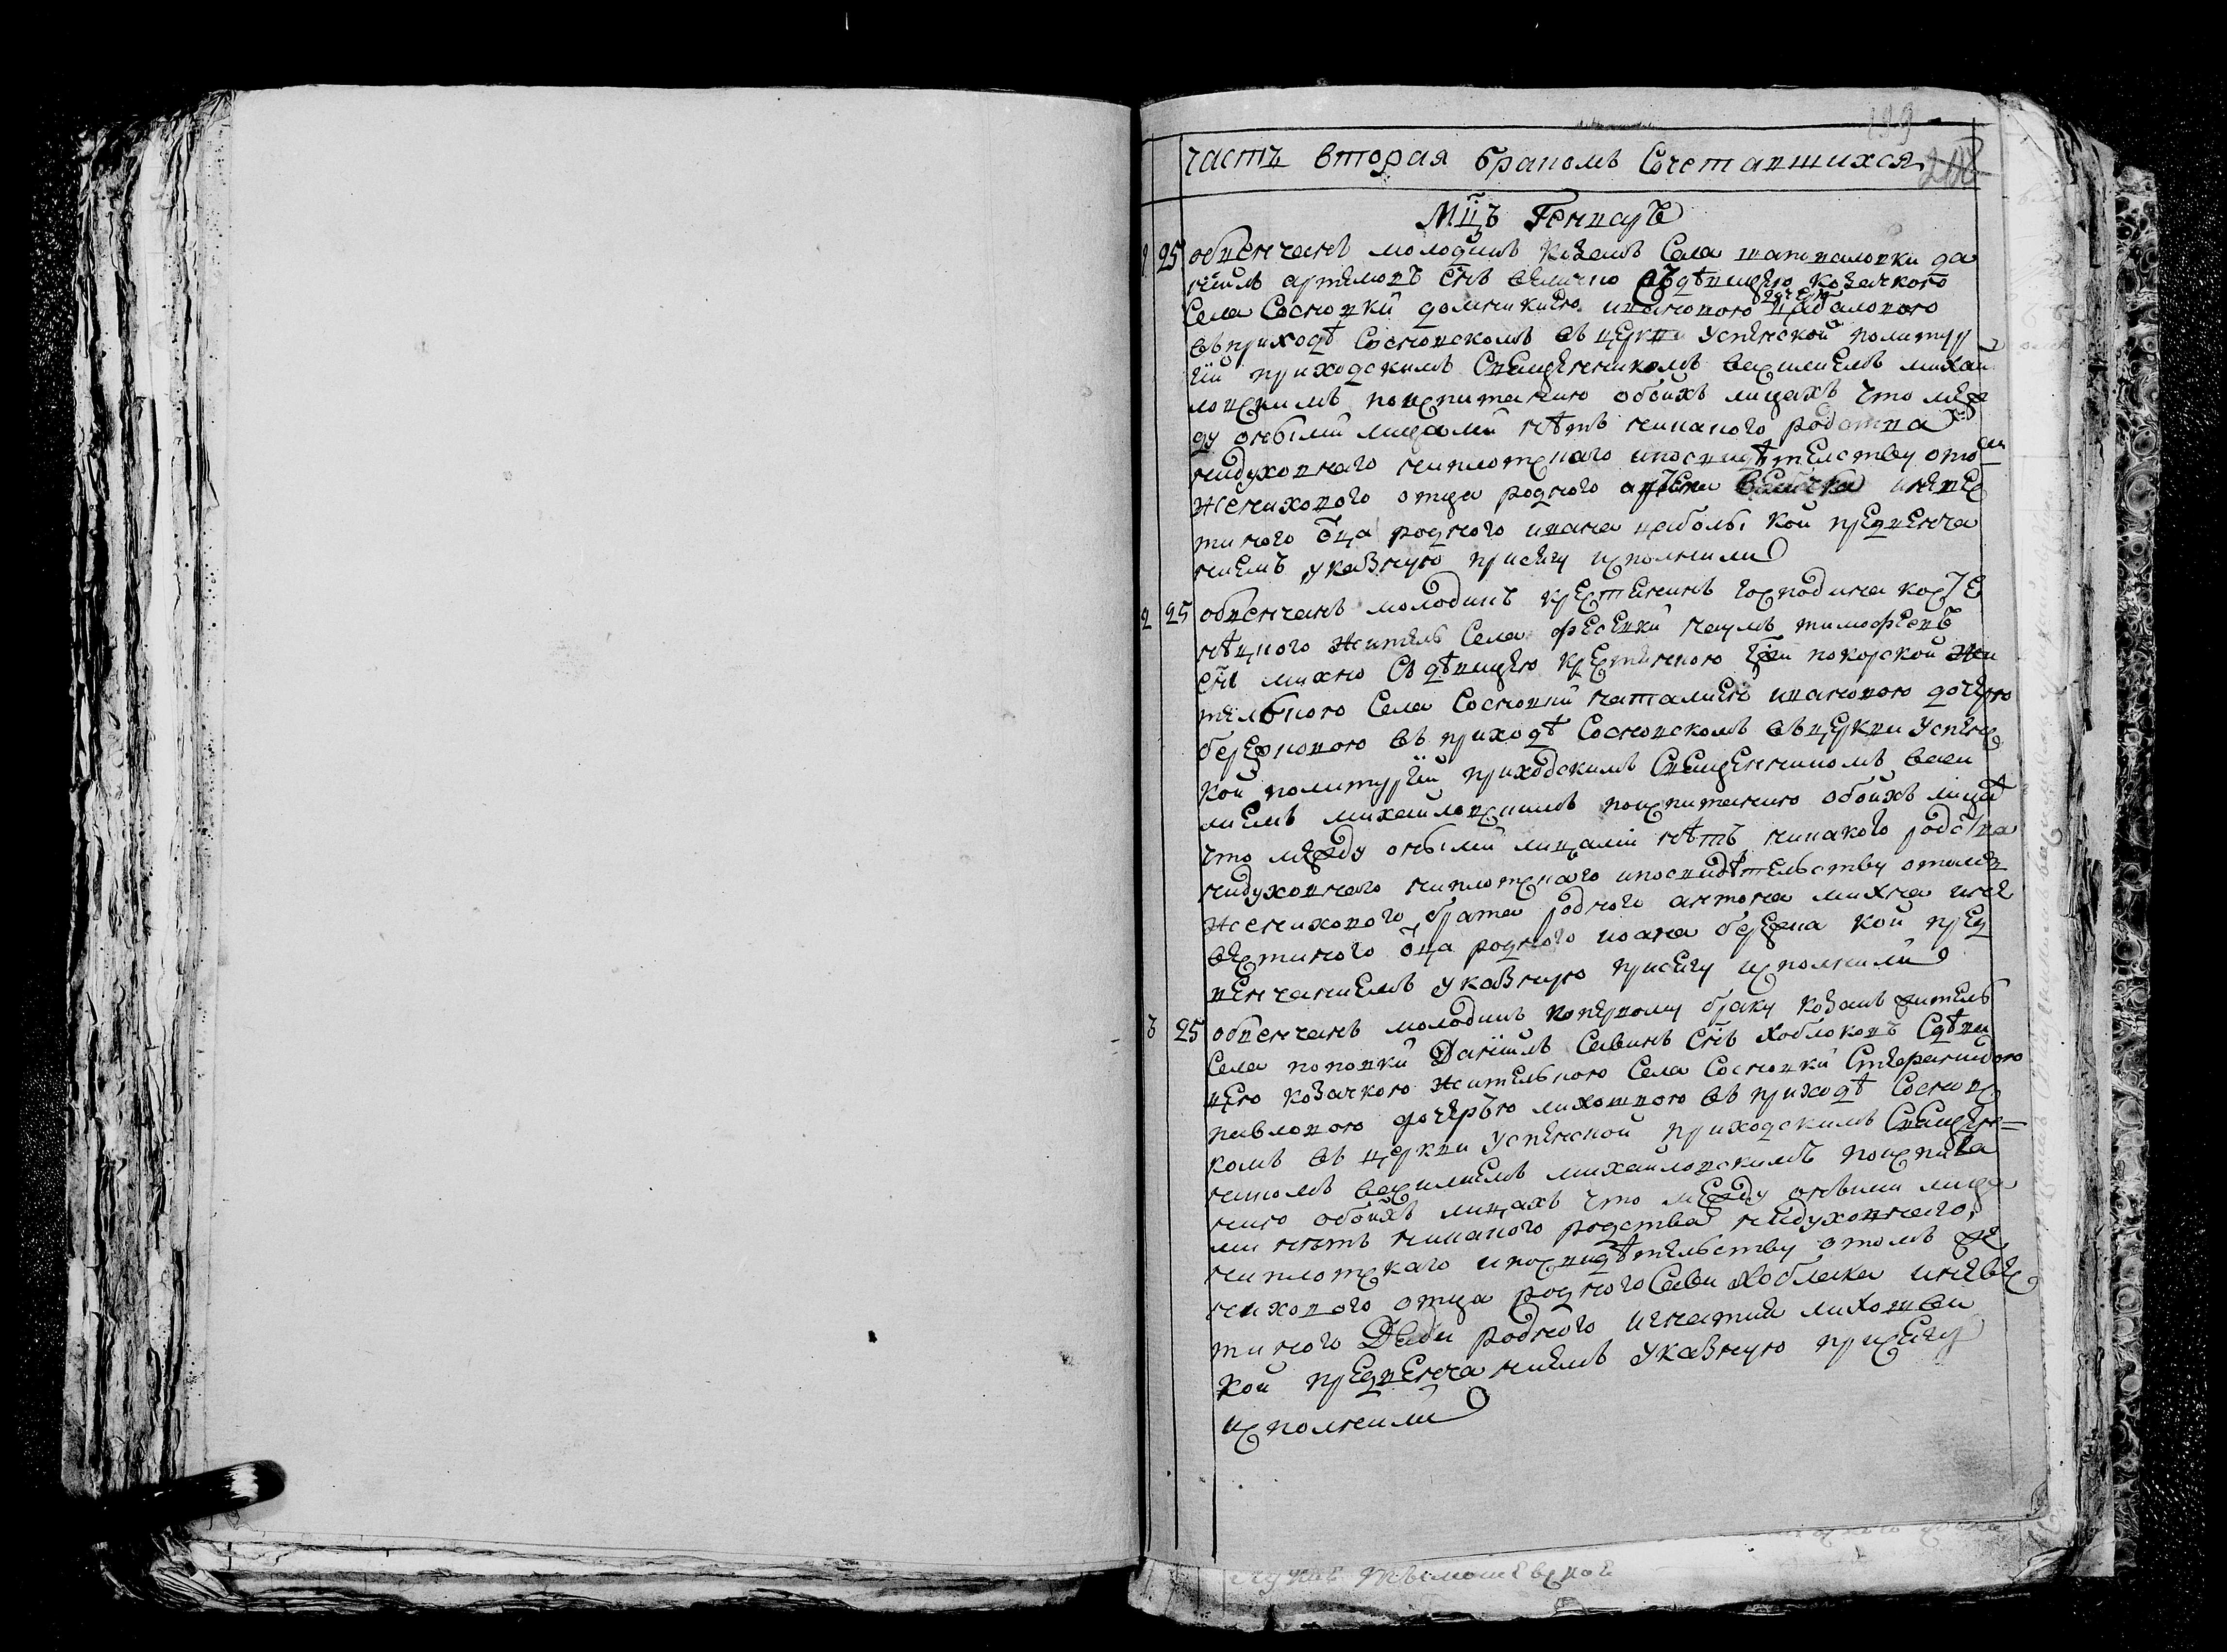 199
200
часть вторая браковъ Сочетавшихся
Мцъ Генваръ
1 25 обвенчанъ молодикъ козакъ Села шаповаловки да
нїилъ артемовъ Снъ величко зъ девицею козачкою
Села Сосновки домникиею ивановою дочерю цебаловою
въ приходѣ Сосновскомъ въ церкви Успенской политур
гїи приходскимъ Священникомъ василиемъ михай
ловскимъ поиспитанию обоихъ лицахъ что меж
ду оными лицами нѣтъ никакого родства
нидуховнаго ниплотскаго ипосвидѣтелству отомъ
женихового отца родного величка иневес
тиного Оца родного ивана цеболы кои предвенча
ниемъ указную присягу исполнили
2 25 обвенчанъ молодикъ крестянинъ господина
жителъ Села фесевки наумъ тимофеевъ
Снъ михно Съ девицею крестянкою покорской жи
тельною Села Сосновки наталиею ивановою дочерю
бережновою въ приходѣ Сосновскомъ въ церкви Успенс
кой политургїи приходскимъ Священникомъ васи
лиемъ михайловскимъ поиспитанию обоихъ лицѣ
что между оными лицами нѣтъ никакого родства
нидуховнаго ниплотскаго ипосвидѣтельству отомъ
женихового брата родного антона михна ине
вестиного Оца родного иоана бережна кои пред
венчаниемъ указную присягу исполнили
3 25 обвенчанъ молодикъ поперому браку козакъ житель
Села поповки Данїилъ Савинъ Снъ хоблоковъ Сдѣви
цею козачкою жительною Села Сосновки Стефанидою
павловою дочерью лихошвою въ приходѣ Соснов
комъ въ церкви Успенской приходскимъ Священ=
никомъ василиемъ михайловскимъ поиспита
нию обоихъ лицахъ что между оными лица
ми нетъ никакого родства нидуховнаго,
ниплотскаго ипосвидѣтельству отомъ же
нихового отца родного Сави хоблака иневес
тиного Деда родного игнатия лихошви
кои предвенчаниемъ указную присягу
исполнили